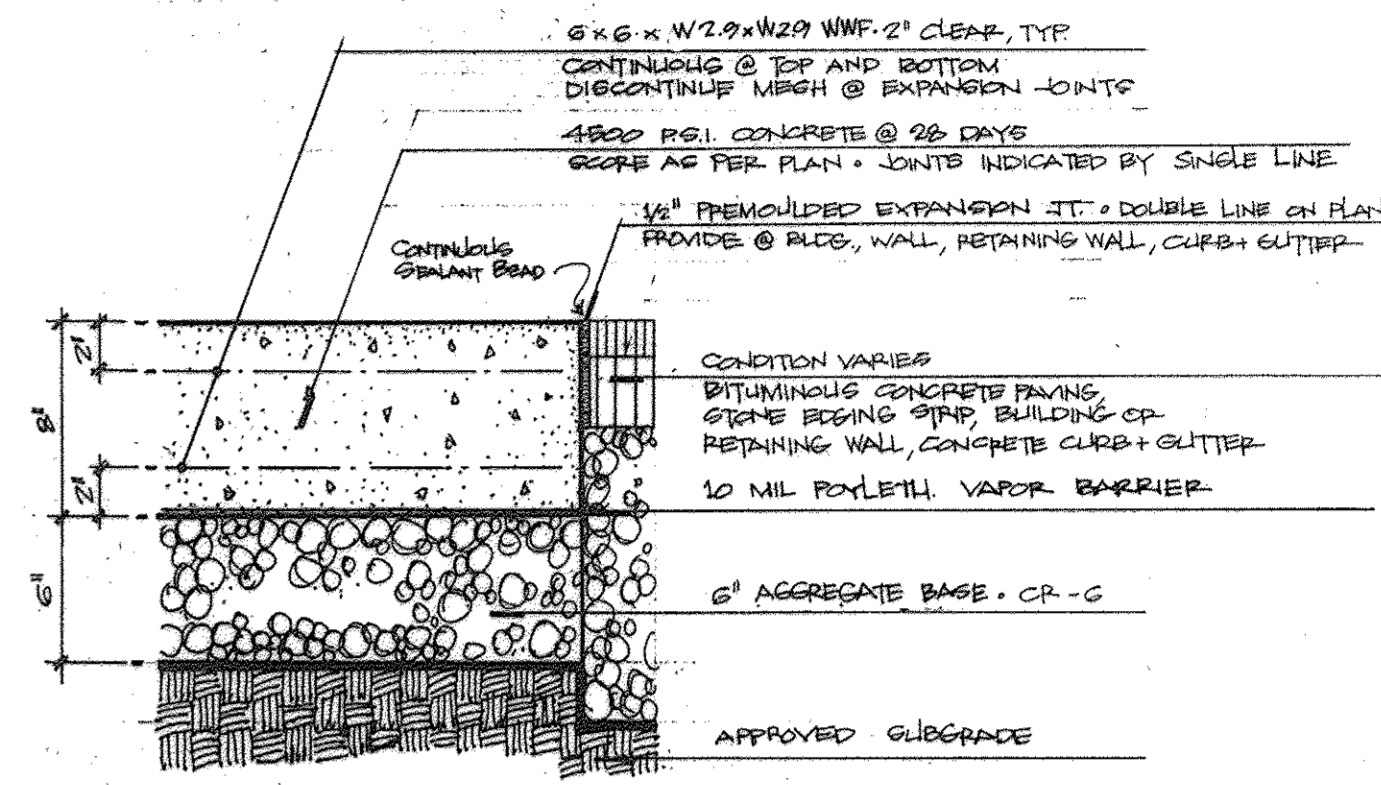 6 x 6 x W2.9xW29 WWF. 2" CLEAR, TYP.
CONTINUOUS @ TOP AND BOTTOM
DISCONTINUE MESH @ EXPANSION JOINTS
4500 P.S.I. CONCRETE @ 28 DAYS
SCORE AS PER PLAN • JOINTS INDICATED BY SINGLE LINE
1/2" PREMOULDED EXPANSION JT. • DOUBLE LINE ON PLAN
PROVIDE @ BLDG., WALL, RETAINING WALL, CURB + GUTTER
CONTINUOUS
SEALANT BEAD
2"
8"
2"
6"
CONDITION VARIES
BITUMINOUS CONCRETE PAVING,
STONE EDGING STRIP, BUILDING OR
RETAINING WALL, CONCRETE CURB + GUTTER
10 MIL POYLETH. VAPOR BARRIER
6" AGGREGATE BASE • CR-6
APPROVED SUBGRADE